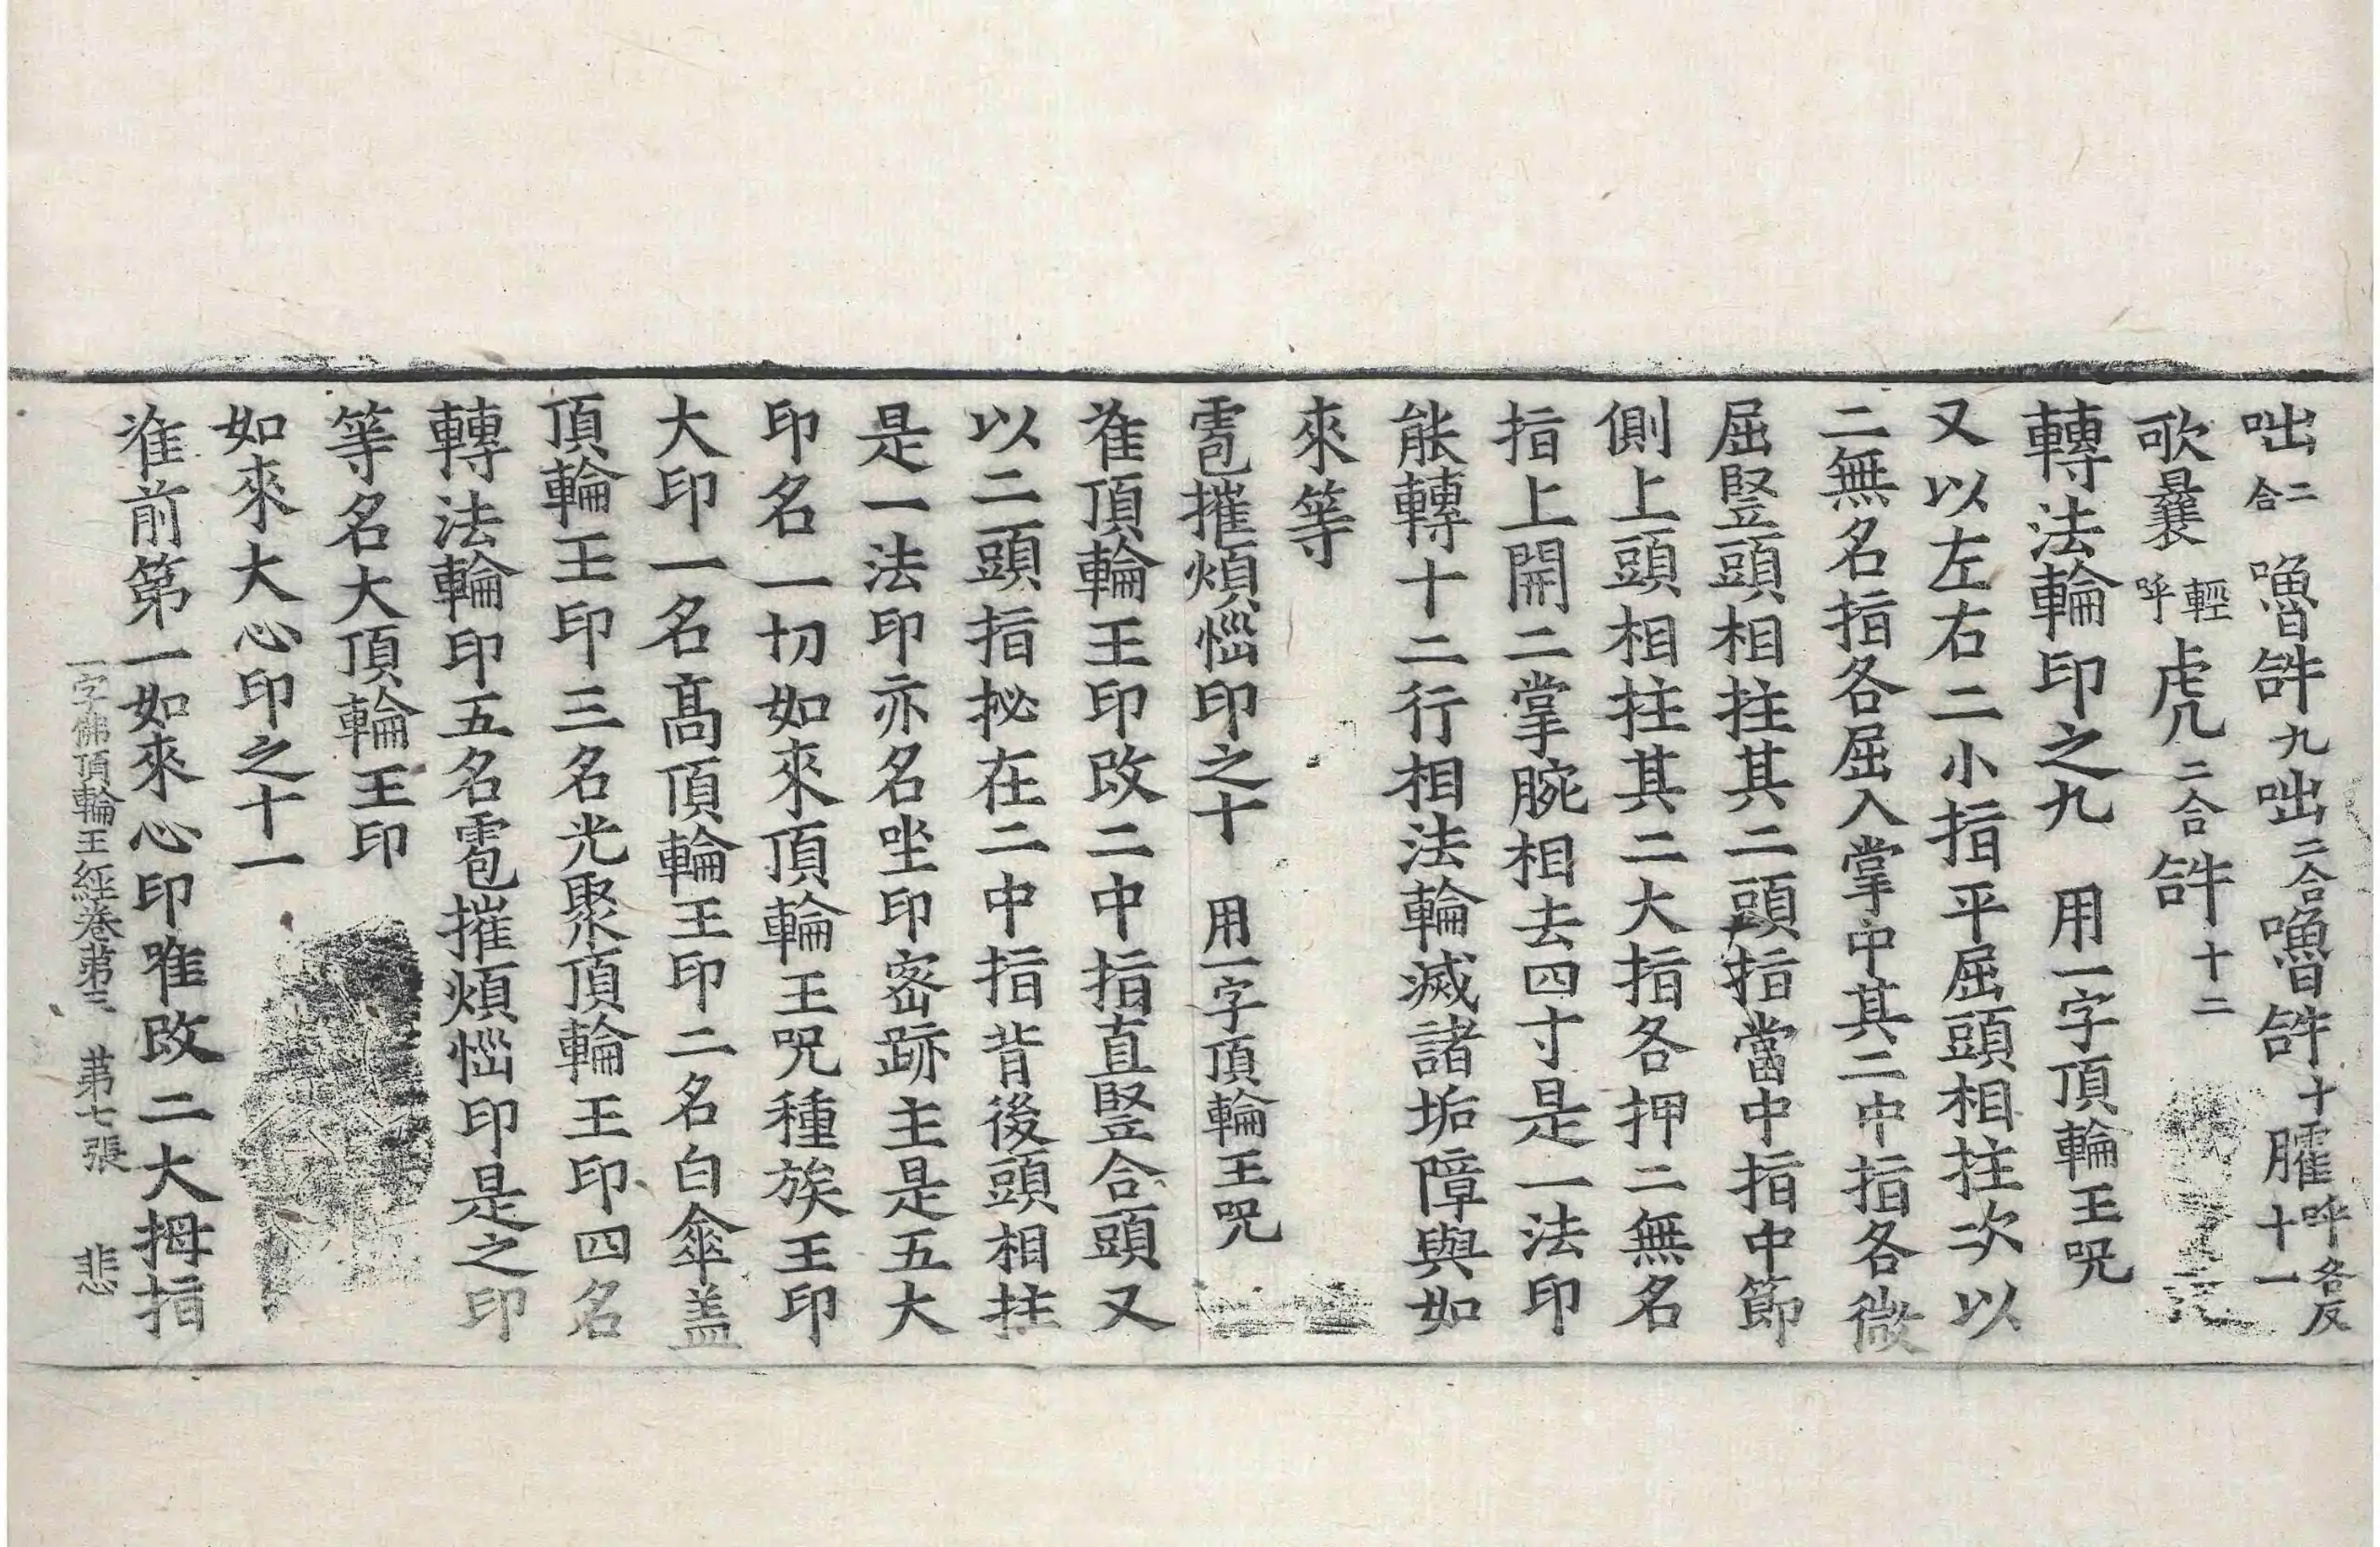 咄二合嚕𤙖九咄二合嚕𤙖十臛呼各反十一
歌曩輕呼虎𠘨二合𤙖十二
轉法輪印之九　用一字頂輪王咒
又以左右二小指平屈頭相拄次以
二無名指各屈入掌中其二中指各微
屈竪頭相拄其二頭指當中指中節
側上頭相拄其二大指各押二無名
指上開二掌腕相去四寸是一法印
能轉十二行相法輪滅諸垢障與如
來等
雹摧煩惱印之十　用一字頂輪王咒
准頂輪王印改二中指直竪合頭又
以二頭指拯在二中指背後頭相拄
是一法印亦名坐印密跡主是五大
印名一切如來頂輪王咒種族王印
大印一名高頂輪王印二名白傘盖
頂輪王印三名光聚頂輪王印四名
轉法輪印五名雹摧煩惱印是之印
等名大頂輪王印
如來大心印之十一
准前第一如來心印唯改二大拇指
一字佛頂輪王經卷苐三　苐七張　悲